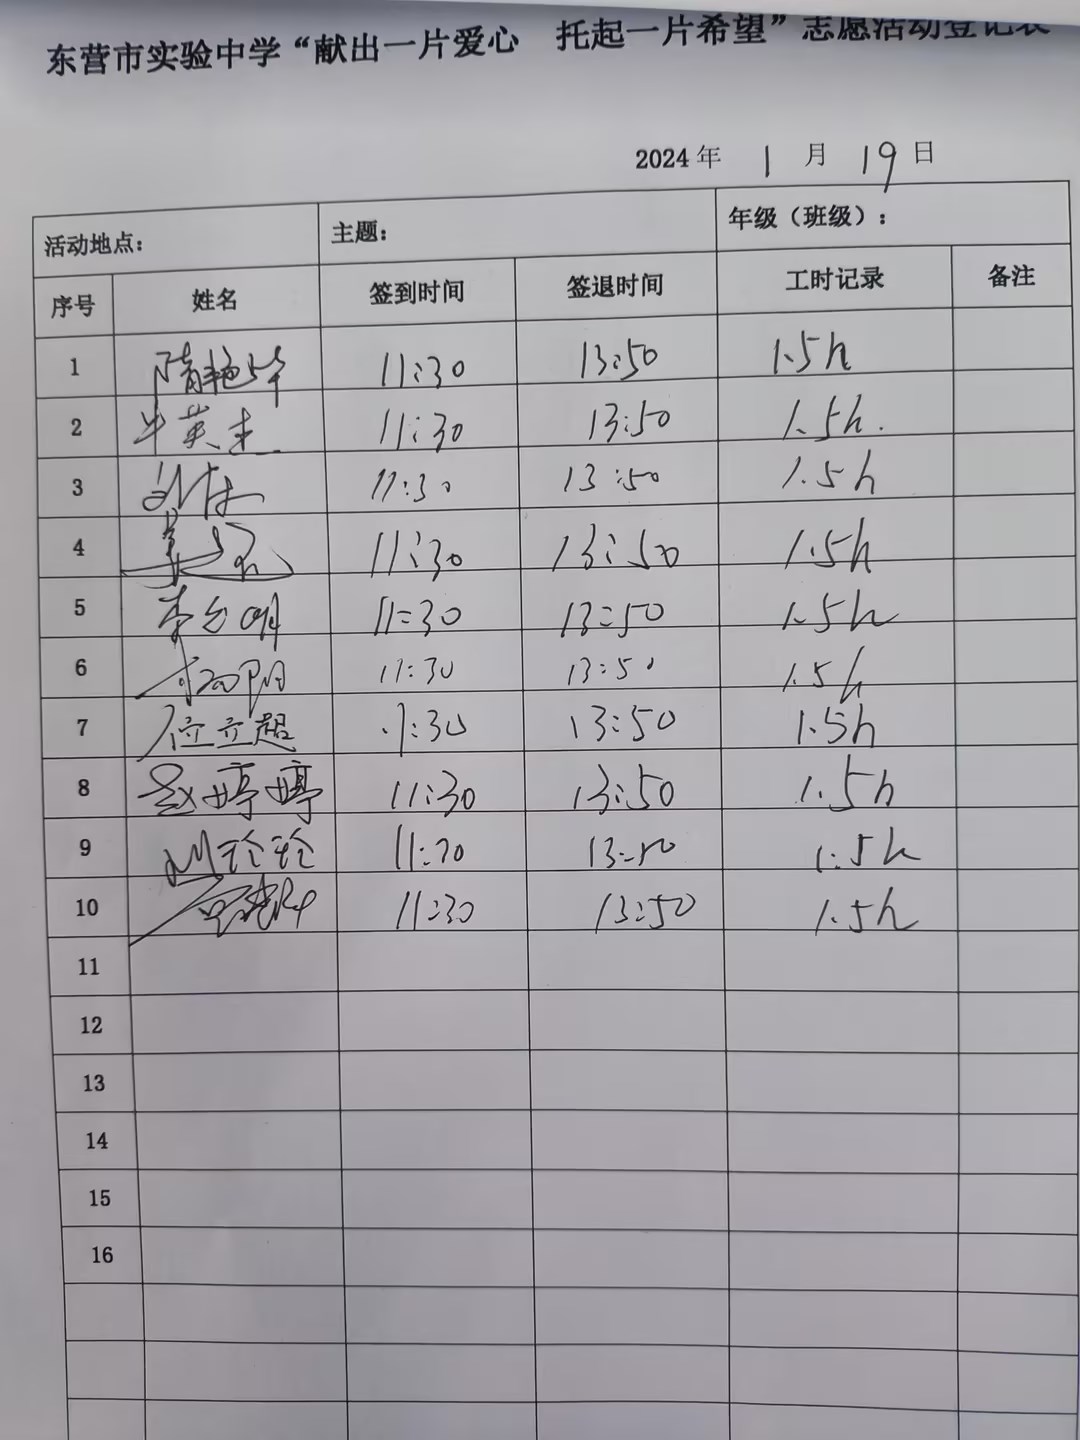 东营市实验中学“献出一片爱心 托起一片希望”志愿活动登记表
2024年 1 月 19 日
活动地点： 主题： 年级（班级）：
序号 姓名 签到时间 签退时间 工时记录 备注
1 隋艳华 11:30 13:50 1.5h
2 牛英杰 11:30 13:50 1.5h.
3 11:30 13:50 1.5h
4 11:30 13:50 1.5h
5 11:30 13:50 1.5h
6 11:30 13:50 1.5h
7 位立超 11:30 13:50 1.5h
8 赵婷婷 11:30 13:50 1.5h
9 刘玲玲 11:30 13:50 1.5h
10 11:30 13:50 1.5h
11
12
13
14
15
16